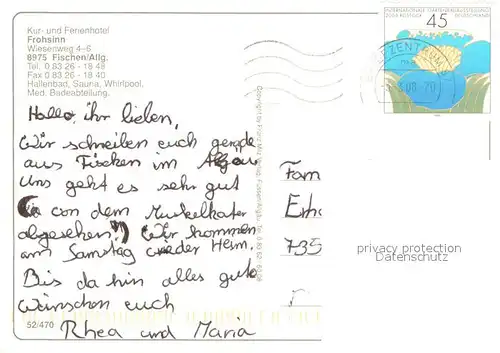 Kur- und Ferienhotel
Frohsinn
Wiesenweg 4-6
8975 Fischen/Allg.
Tel. 0 83 26 - 18 48
Fax 0 83 26 - 18 40
Hallenbad, Sauna, Whirlpool.
Med. Badeabteilung.
Hallo, ihr lieben,
Wir schreiben euch gerade
aus Fischen im Algäu
Uns geht es sehr gut
(von dem Muskelkater
abgesehen!) Wir kommen
am Samstag wieder Heim.
Bis da hin alles gute
Wünschen euch
Rhea und Maria
52/470
45
Fam
Erh
735
privacy protection
Datenschutz